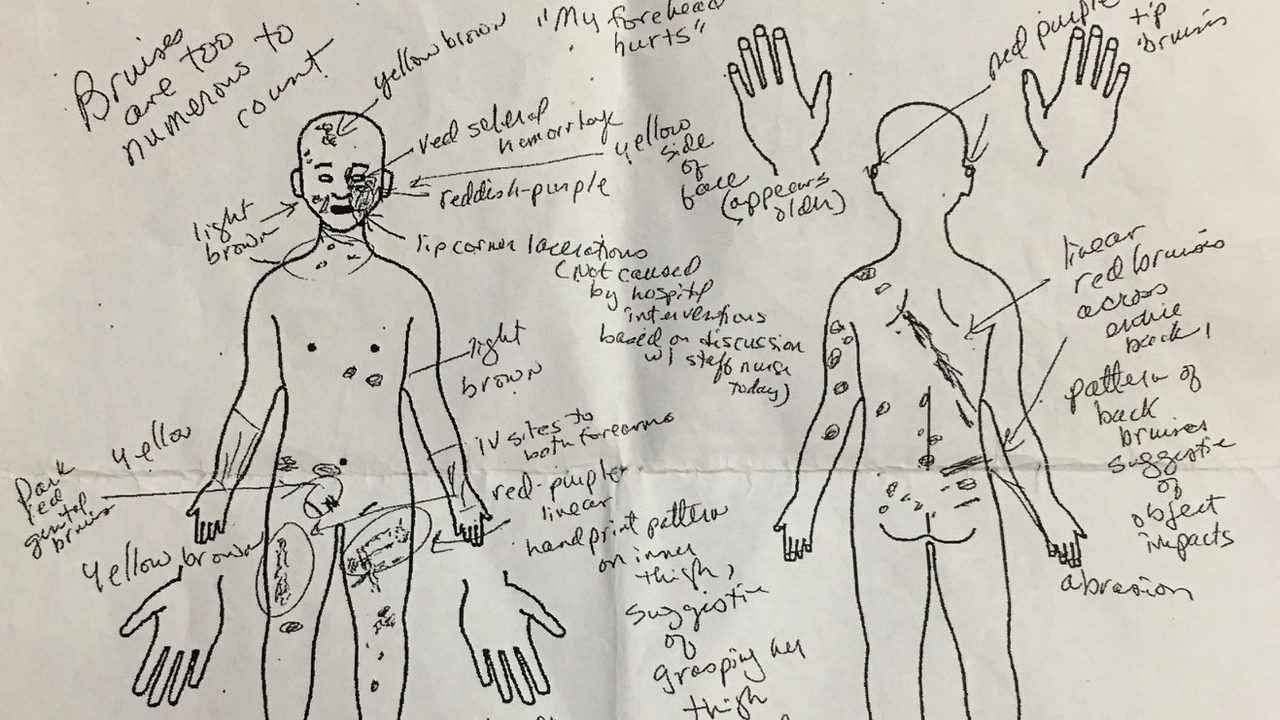 Bruises
are too
numerous to
count
yellow brown
"My forehead
hurts"
red scleral
hemorrhage
yellow
side
of
face
(appears
older)
reddish-purple
light
brown
lip corner lacerations
(Not caused
by hospital
interventions
based on discussion
w/ staff nurse
today)
light
brown
IV sites to
both forearms
red-purple
linear
handprint pattern
on inner
thigh,
suggestive
of
grasping her
thigh
yellow
Dark
red
genital
bruises
yellow brown
red purple
tip
bruises
linear
red bruises
across
entire
back,
pattern of
back
bruises
suggestive
of
object
impacts
abrasion